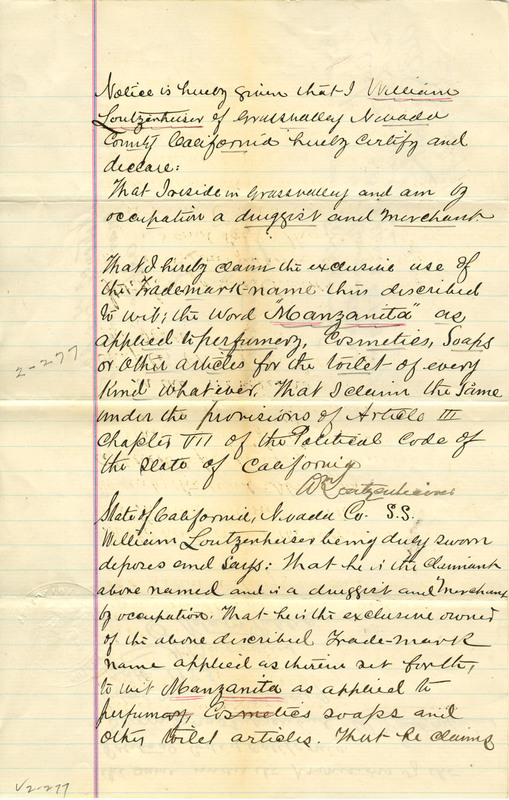 Notice is hereby given that I William
Loutzenheiser of Grassvalley Nevada
County California hereby certify and
declare:
That I reside in Grassvalley and am by
occupation a druggist and merchant.
That I hereby claim the exclusive use of
the Trademark name thus described
to wit; the word "Manzanita" as
applied to perfumery, Cosmetics, Soaps
or other articles for the toilet of every
kind whatever, That I claim the same
under the provisions of Article III
Chapter VII of the Political Code of
the State of California
Wm Loutzenheiser
2-277
State of California, Nevada Co. S.S.
William Loutzenheiser being duly sworn
deposes and says: That he is the claimant
above named and is a druggist and merchant
by occupation. That he is the exclusive owner
of the above described Trade-mark
name applied as herein set forth,
to wit Manzanita as applied to
perfumery, Cosmetics soaps and
other toilet articles. That he claims
V2-277